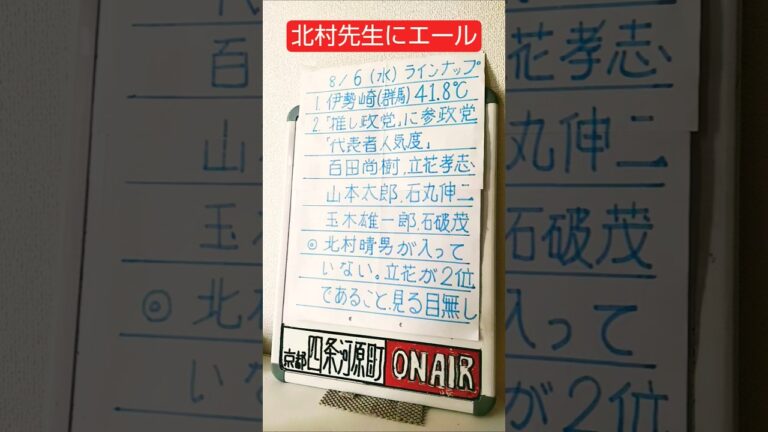 北村先生にエール
8/6(水)ラインナップ
1.伊勢崎(群馬)41.8℃
2.「推し政党」に参政党
「代表者人気度」
百田尚樹、立花孝志、
山本太郎、石丸伸二
玉木雄一郎、石破茂
◎北村晴男が入って
いない。立花が2位
であること、見る目無し
京都四条河原町 ON AIR